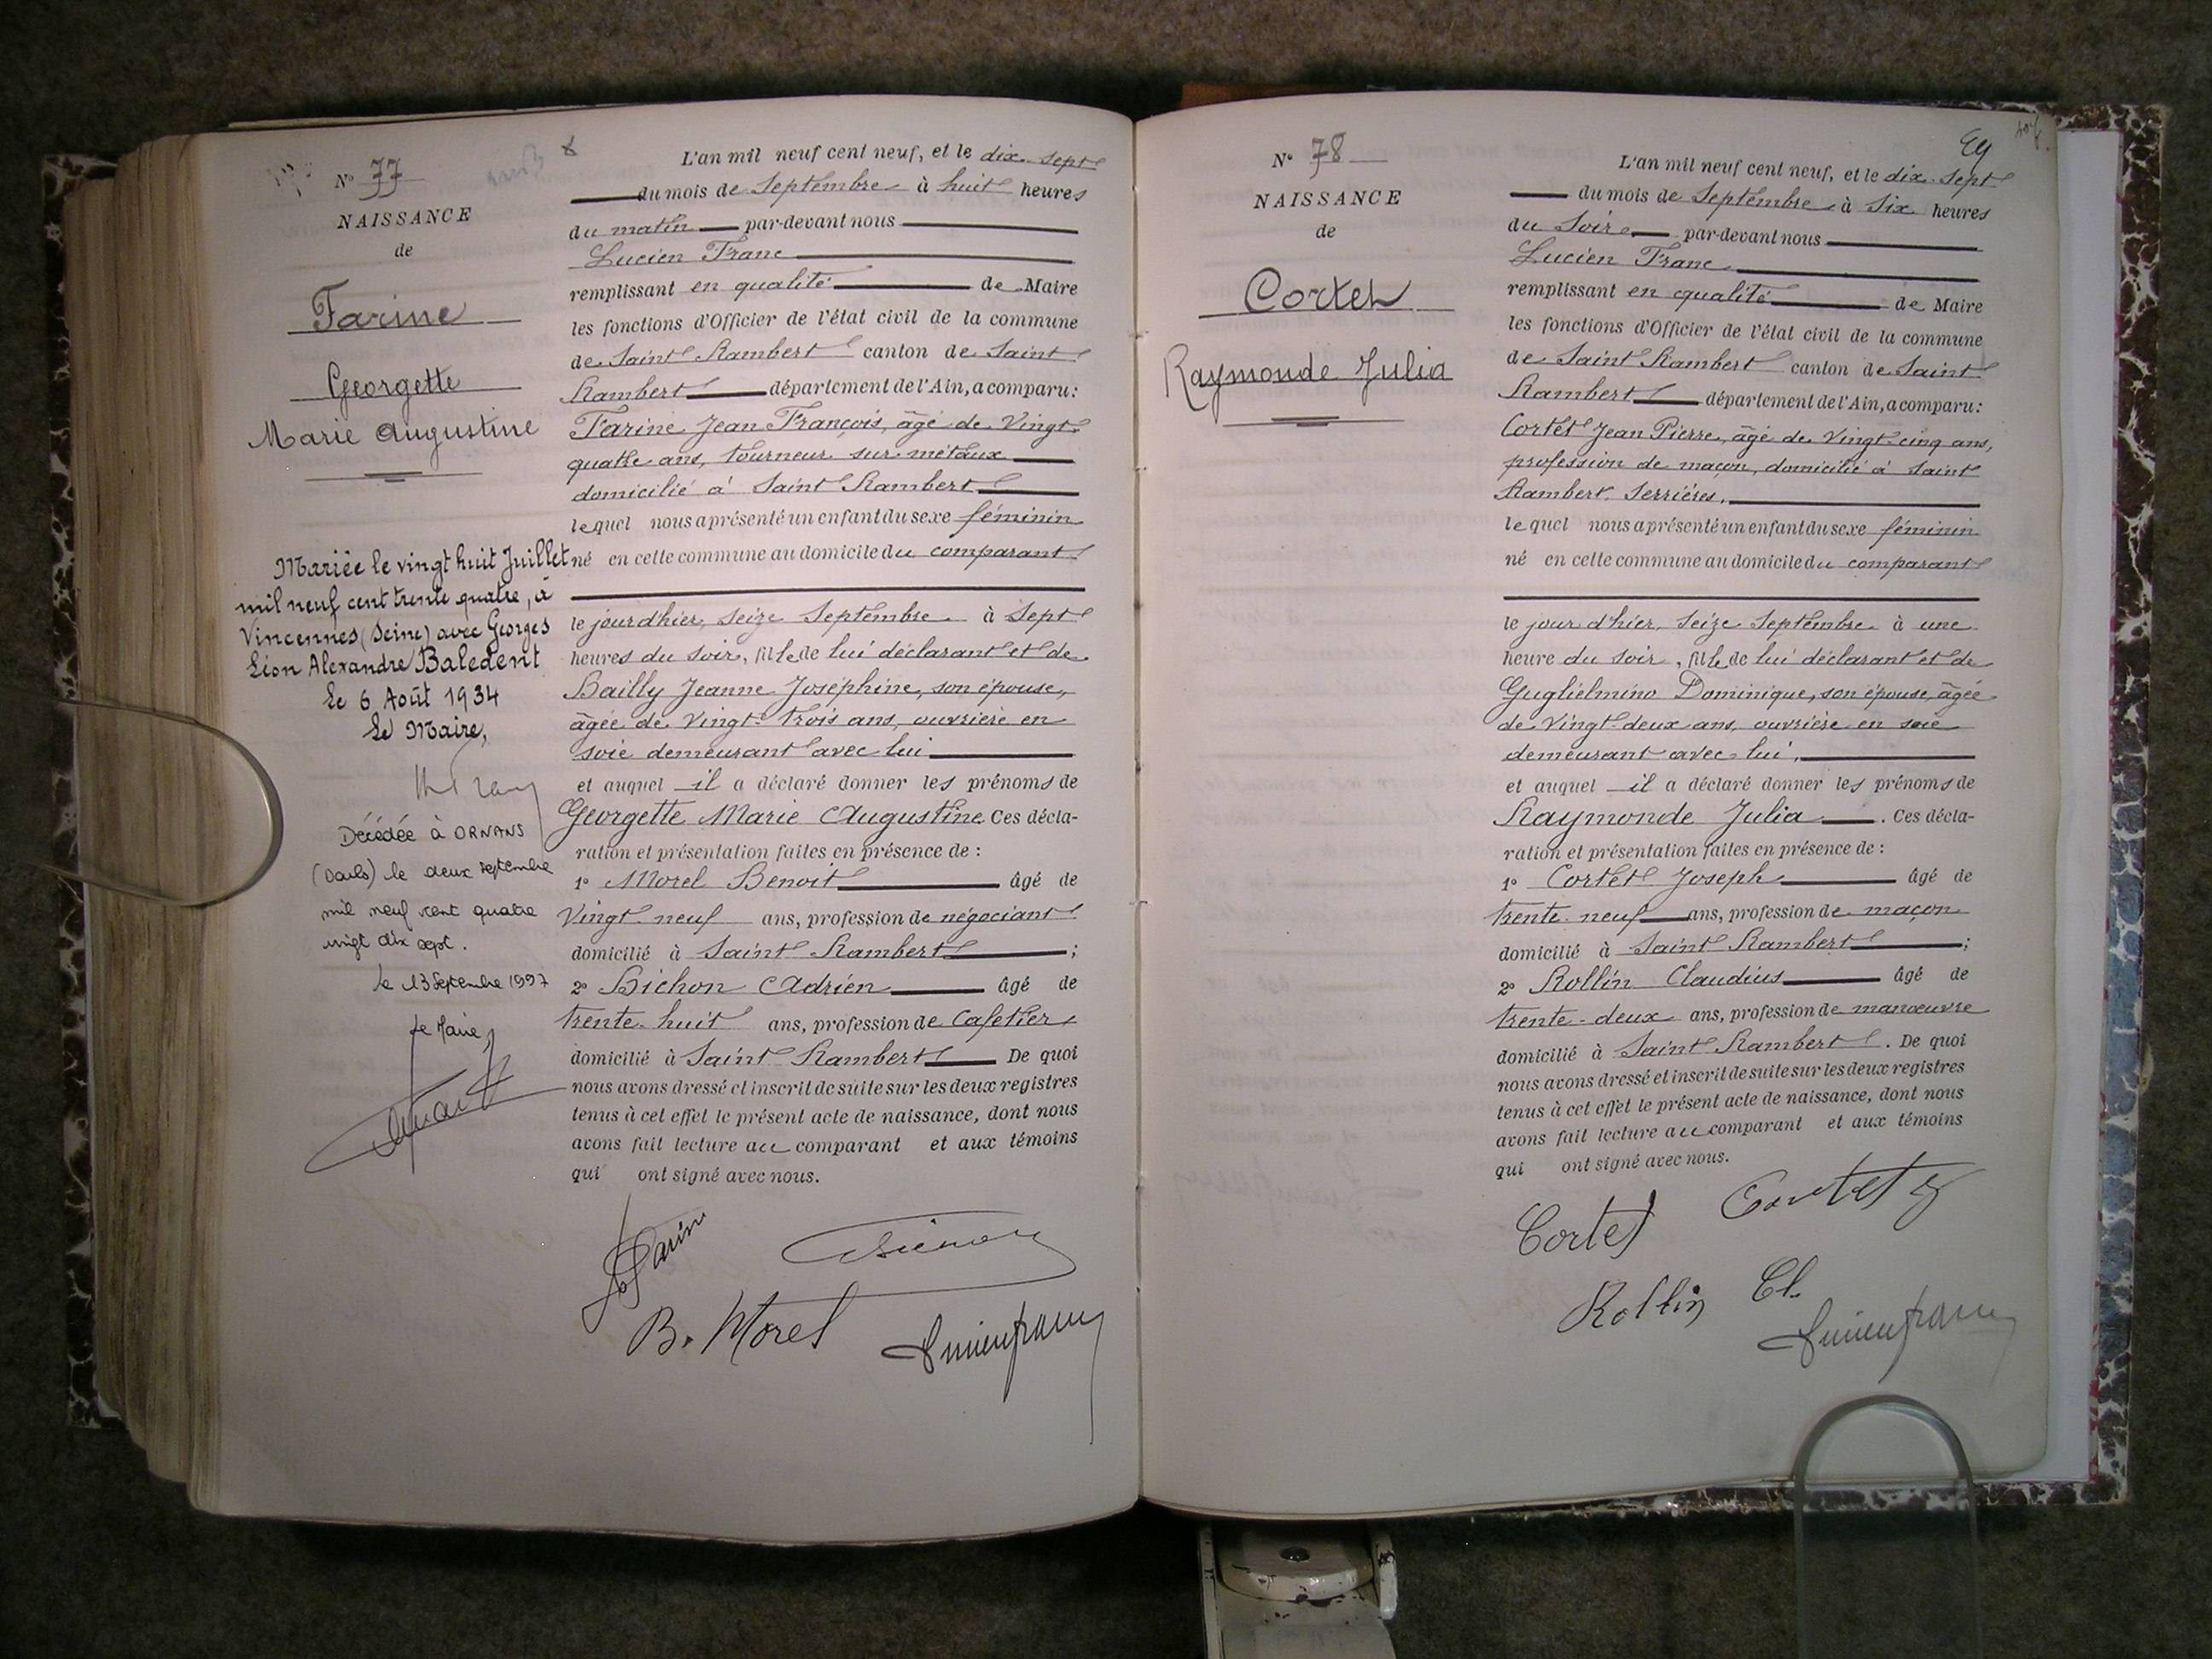 N° 77
NAISSANCE
de
Farine
Georgette
Marie Augustine
Mariée le vingt huit Juillet
mil neuf cent trente quatre, à
Vincennes (Seine) avec Georges
Léon Alexandre Baledent
Le 6 Août 1934
Le Maire,
Décédée à ORNANS
(Doubs) le deux septembre
mil neuf cent quatre
vingt dix sept.
le 13 Septembre 1997
Le Maire,
L'an mil neuf cent neuf, et le dix-sept
du mois de Septembre à huit heures
du matin par-devant nous
Lucien Franc
remplissant en qualité de Maire
les fonctions d'Officier de l'état civil de la commune
de Saint Rambert canton de Saint
Rambert département de l'Ain, a comparu:
Farine Jean François, âgé de Vingt-
quatre ans, tourneur sur métaux
domicilié à Saint Rambert
lequel nous a présenté un enfant du sexe féminin
né en cette commune au domicile du comparant
le jour d'hier, seize Septembre à Sept
heures du soir, fille de lui déclarant et de
Bailly Jeanne Joséphine, son épouse,
âgée de Vingt-trois ans, ouvrière en
soie demeurant avec lui
et auquel il a déclaré donner les prénoms de
Georgette Marie Augustine Ces décla-
ration et présentation faites en présence de :
1° Morel Benoit âgé de
Vingt-neuf ans, profession de négociant
domicilié à Saint Rambert ;
2° Bichon Adrien âgé de
trente-huit ans, profession de Cafetier
domicilié à Saint Rambert De quoi
nous avons dressé et inscrit de suite sur les deux registres
tenus à cet effet le présent acte de naissance, dont nous
avons fait lecture au comparant et aux témoins
qui ont signé avec nous.
Farine
B. Morel
Lucien Franc
N° 78
NAISSANCE
de
Cortet
Raymonde Julia
L'an mil neuf cent neuf, et le dix-sept
du mois de Septembre à Six heures
du Soir par-devant nous
Lucien Franc
remplissant en qualité de Maire
les fonctions d'Officier de l'état civil de la commune
de Saint Rambert canton de Saint
Rambert département de l'Ain, a comparu:
Cortet Jean Pierre, âgé de Vingt-cinq ans,
profession de maçon, domicilié à Saint
Rambert Serrières.
lequel nous a présenté un enfant du sexe féminin
né en cette commune au domicile du comparant
le jour d'hier, seize Septembre à une
heure du soir, fille de lui déclarant et de
Guglielmino Dominique, son épouse, âgée
de Vingt-deux ans, ouvrière en soie
demeurant avec lui,
et auquel il a déclaré donner les prénoms de
Raymonde Julia . Ces décla-
ration et présentation faites en présence de :
1° Cortet Joseph âgé de
trente-neuf ans, profession de maçon
domicilié à Saint Rambert ;
2° Rollin Claudius âgé de
trente-deux ans, profession de manœuvre
domicilié à Saint Rambert . De quoi
nous avons dressé et inscrit de suite sur les deux registres
tenus à cet effet le présent acte de naissance, dont nous
avons fait lecture au comparant et aux témoins
qui ont signé avec nous.
Cortet Cortet J
Rollin Cl.
Lucien Franc